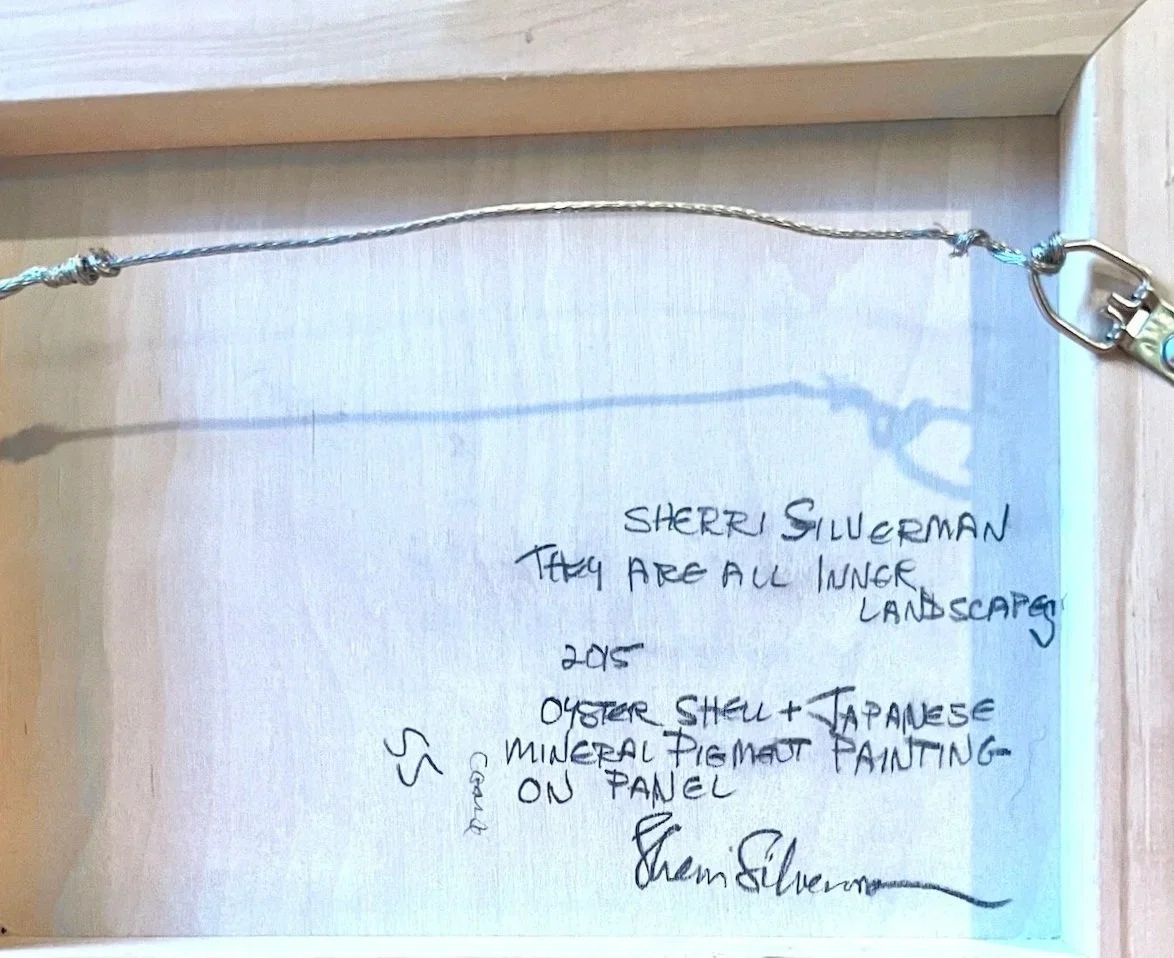 SHERRI SILVERMAN
THEY ARE ALL INNER
LANDSCAPES
2015
OYSTER SHELL + JAPANESE
MINERAL PIGMENT PAINTING
ON PANEL
SS
Sherri Silverman